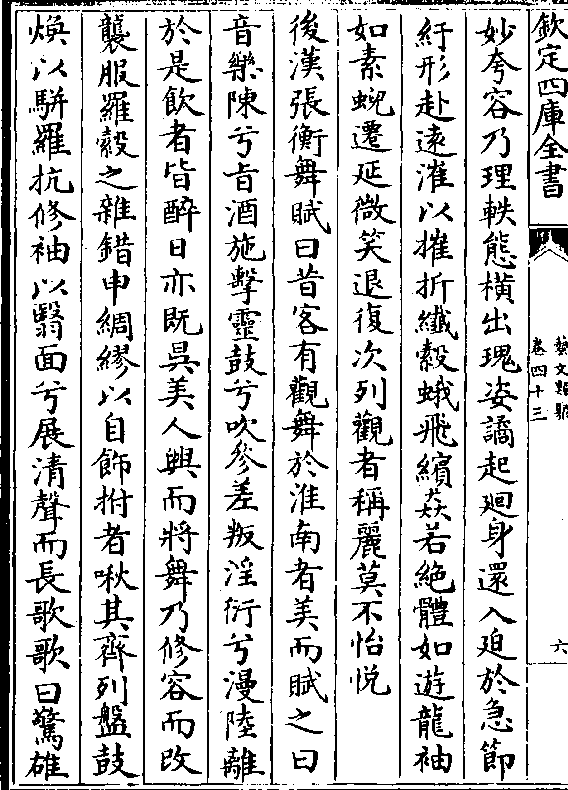 欽定四庫全書
藝文類聚
卷四十三
六
妙夸容乃理軼態橫出瑰姿譎起廻身還入廹於急節
紆形赴逺漼以摧折纖縠蛾飛繽焱若絶體如遊龍袖
如素蜺遷延微笑退復次列觀者稱麗莫不怡悅
後漢張衡舞賦曰昔客有觀舞於淮南者美而賦之曰
音樂陳兮旨酒施擊靈鼓兮吹參差叛淫衍兮漫陸離
於是飲者皆醉日亦既昃美人興而將舞乃修容而改
襲服羅縠之雜錯申綢繆以自飾拊者啾其齊列盤鼓
煥以駢羅抗修袖以翳面兮展清聲而長歌歌曰驚雄